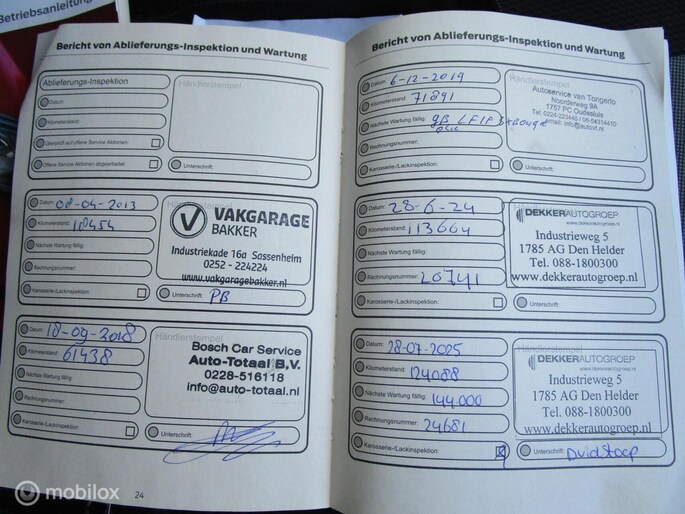 Betriebsanleitung
Bericht von Ablieferungs-Inspektion und Wartung
Ablieferungs-Inspektion
Datum:
Kilometerstand:
Überprüft auf offene Service Aktionen
Offene Service Aktionen abgearbeitet
Händlerstempel
Unterschrift:
Datum: 08-04-2013
Kilometerstand: 18454
Nächste Wartung fällig:
Rechnungsnummer:
Karosserie-/Lackinspektion:
VAKGARAGE
BAKKER
Industriekade 16a Sassenheim
0252 - 224224
www.vakgaragebakker.nl
Unterschrift: PB
Datum: 18-09-2018
Kilometerstand: 61438
Nächste Wartung fällig:
Rechnungsnummer:
Karosserie-/Lackinspektion:
Händlerstempel
Bosch Car Service
Auto-Totaal B.V.
0228-516118
info@auto-totaal.nl
Unterschrift:
24
Bericht von Ablieferungs-Inspektion und Wartung
Datum: 6-12-2019
Kilometerstand: 71891
Nächste Wartung fällig:
Rechnungsnummer:
Karosserie-/Lackinspektion:
Händlerstempel
Autoservice van Tongerlo
Noorderweg 9A
1757 PC Oudesluis
Tel: 0224-223446 / 06-54314410
email: info@autovt.nl
Unterschrift:
Datum: 28-6-24
Kilometerstand: 113664
Nächste Wartung fällig:
Rechnungsnummer: 20741
Karosserie-/Lackinspektion:
DEKKERAUTOGROEP
Industrieweg 5
1785 AG Den Helder
Tel. 088-1800300
www.dekkerautogroep.nl
Unterschrift:
Datum: 28-07-2025
Kilometerstand: 124088
Nächste Wartung fällig: 144.000
Rechnungsnummer: 24681
Karosserie-/Lackinspektion:
DEKKERAUTOGROEP
Industrieweg 5
1785 AG Den Helder
Tel. 088-1800300
www.dekkerautogroep.nl
Unterschrift:
mobilox